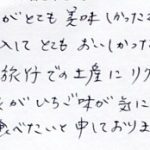 がとても美味しかったよ
入してとてもおいしかった
旅行での土産にリク
がいちご味が気に
食べたいと申しておりま